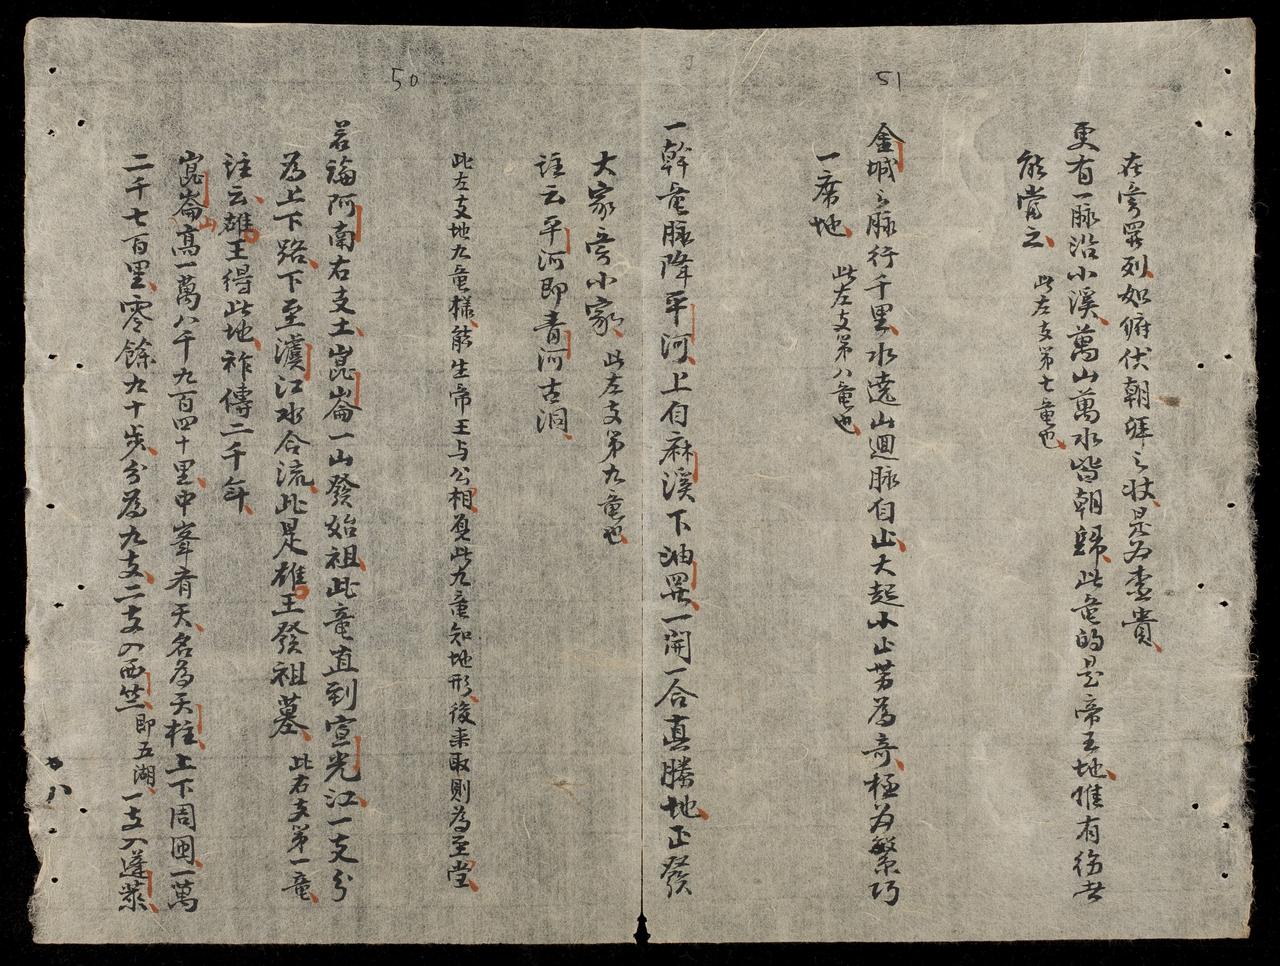 51
在旁羅列如俯伏朝拜之狀是为查貴
更有一脉沿小溪萬山萬水皆朝歸此竜的是帝王地惟有待者
能當之 此左支第七竜也
金城之脉行千里水遶山迴脉自止大起小止势為奇極为繁巧
一席地 此左支第八竜也
一幹竜脉降平河上自麻溪下油罢一開一合真勝地正發
大家旁小家 此左支第九竜也
註云平河即青河古洞
50
此左支地九竜樣能生帝王与公相夏此九竜知地形後来取則為至堂
若論阿南右支土崑崙一山發始祖此竜直到宣光江一支分
為上下路下至瀘江水合流此是雄王發祖墓 此右支第一竜
註云雄王得此地祚傳二千年
崑崙山高一萬八千九百四十里中峯有天名為天柱上下周囬一萬
二千七百里零餘九十步分為九支二支入西竺即五湖一支入蓬萊
八